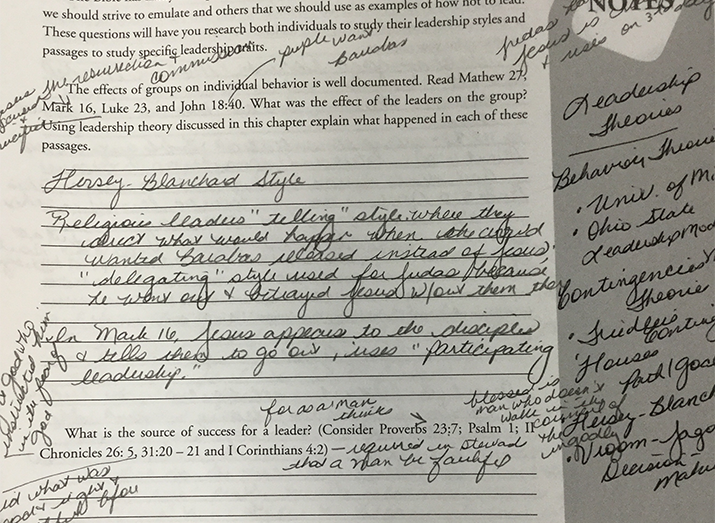 we should strive to emulate and others that we should use as examples of how not to lead.
These questions will have you research both individuals to study their leadership styles and
passages to study specific leadership traits.
people want
Barabas
Judas
Jesus is
NOTES
+ uses on 3rd day
the resurrection +
The effects of groups on individual behavior is well documented. Read Mathew 27,
Mark 16, Luke 23, and John 18:40. What was the effect of the leaders on the group?
Using leadership theory discussed in this chapter explain what happened in each of these
passages.
Leadership
Theories
Hersey-Blanchard Style
Religious leaders "telling" style where they
direct what would happen when the crowd
wanted Barabas released instead of Jesus.
"delegating" style used for Judas because
he went out & betrayed Jesus w/out them
In Mark 16, Jesus appears to the disciples
& tells them to go out, uses "participating
leadership."
Behavior Theorie
• Univ. of Mi
• Ohio State
Leadership Mod
Contingencies
Theorie
• Fiedler's
Contin
• Houses
Path/Goal
• Hersey-Blanch
• Vroom-Jago
Decision-
Makin
for as a man
thinks
blessed is
man who doesn't
walk in the
counsel of
the
ungodly
What is the source of success for a leader? (Consider Proverbs 23:7; Psalm 1; II
Chronicles 26: 5, 31:20 – 21 and I Corinthians 4:2) – required in steward
that a man be faithful
god who
instructed him
in the fear of
God
did what was
good & right &